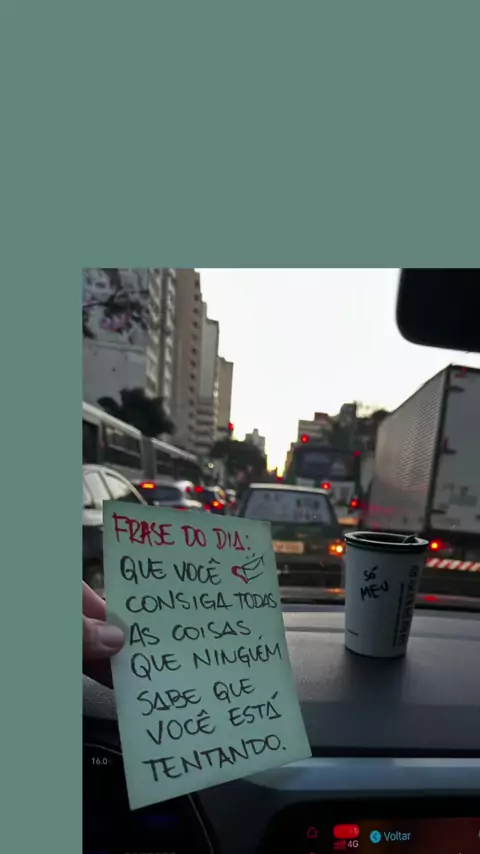 FRASE DO DIA:
QUE VOCÊ
CONSIGA TODAS
AS COISAS
QUE NINGUÉM
SABE QUE
VOCÊ ESTÁ
TENTANDO.
SÓ
MEU
16.0
4G
Voltar